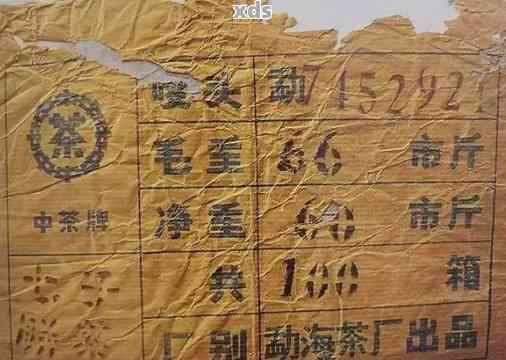 xds
唛头 勐7452921
茶
毛重 66 市斤
中茶牌
净重 60 市斤
七子
共 100 箱
饼茶
厂别 勐海茶厂出品